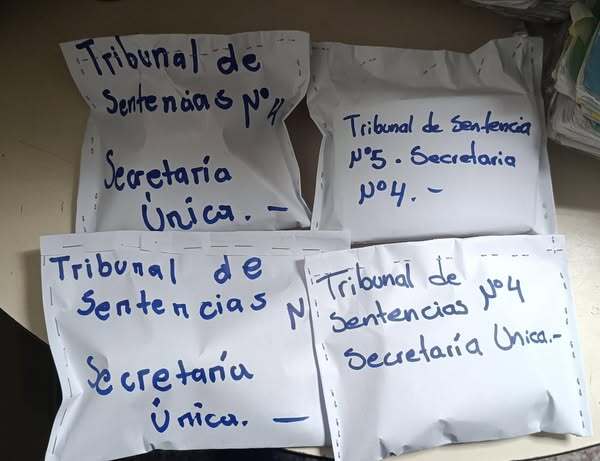 Tribunal de
Sentencias Nº 4
Secretaría
Única. -
Tribunal de Sentencia
Nº5. Secretaria
Nº4. -
Tribunal de
Sentencias N
Secretaría
Única. -
Tribunal de
Sentencias Nº4
Secretaría Única.-